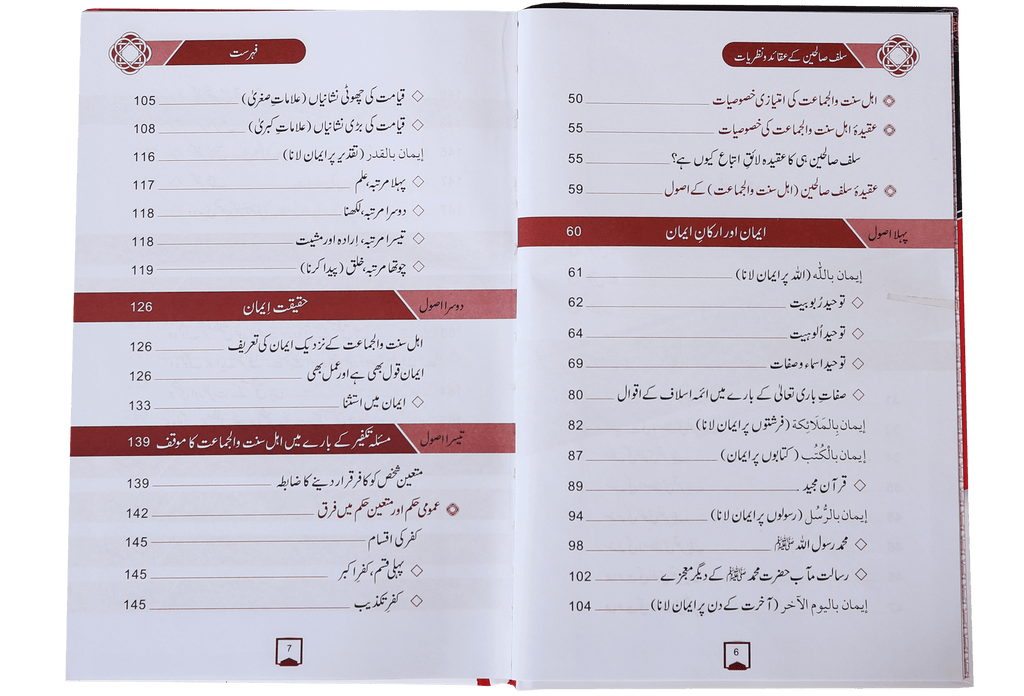 سلف صالحین کے عقائد و نظریات
اہل سنت والجماعت کی امتیازی خصوصیات 50
عقیدۂ اہل سنت والجماعت کی خصوصیات 55
سلف صالحین ہی کا عقیدہ لائقِ اتباع کیوں ہے؟ 55
عقیدۂ سلف صالحین (اہل سنت والجماعت) کے اصول 59
پہلا اصول ایمان اور ارکانِ ایمان 60
إيمان باللّٰه (اللہ پر ایمان لانا) 61
توحیدِ رُبوبیت 62
توحیدِ اُلوہیت 64
توحیدِ اسماء و صفات 69
صفاتِ باری تعالیٰ کے بارے میں ائمہ اسلاف کے اقوال 80
إيمان بِالمَلَائِكة (فرشتوں پر ایمان لانا) 82
إيمان بِالْكُتُب (کتابوں پر ایمان) 87
قرآن مجید 89
إيمان بالرُّسُل (رسولوں پر ایمان لانا) 94
محمد رسول اللہ ﷺ 98
رسالت مآب حضرت محمد ﷺ کے دیگر معجزے 102
إيمان باليوم الآخر (آخرت کے دن پر ایمان لانا) 104
6
فہرست
قیامت کی چھوٹی نشانیاں (علاماتِ صغریٰ) 105
قیامت کی بڑی نشانیاں (علاماتِ کبریٰ) 108
إيمان بالقدر (تقدیر پر ایمان لانا) 116
پہلا مرتبہ، علم 117
دوسرا مرتبہ، لکھنا 118
تیسرا مرتبہ، اِرادہ اور مشیت 118
چوتھا مرتبہ، خلق (پیدا کرنا) 119
دوسرا اصول حقیقت اِیمان 126
اہل سنت والجماعت کے نزدیک ایمان کی تعریف 126
ایمان قول بھی ہے اور عمل بھی 126
ایمان میں استثنا 133
تیسرا اصول مسئلہ تکفیر کے بارے میں اہل سنت والجماعت کا موقف 139
متعین شخص کو کافر قرار دینے کا ضابطہ 139
عمومی حکم اور متعین حکم میں فرق 142
کفر کی اقسام 145
پہلی قسم، کفرِ اکبر 145
کفرِ تکذیب 145
7